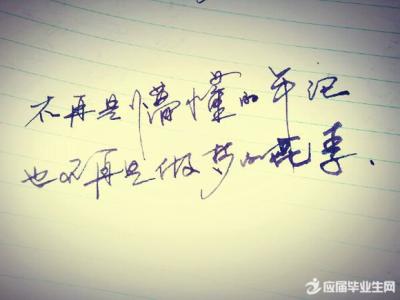 不再是懵懂的年记
也不再是做梦的花季.
应届毕业生网